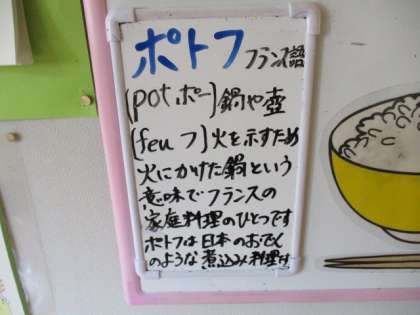 ポトフ フランス語
[pot ポー]鍋や壺
[feu フ]火を示すため
火にかけた鍋という
意味でフランスの
家庭料理のひとつです
ポトフは日本のおでん
のような煮込み料理です